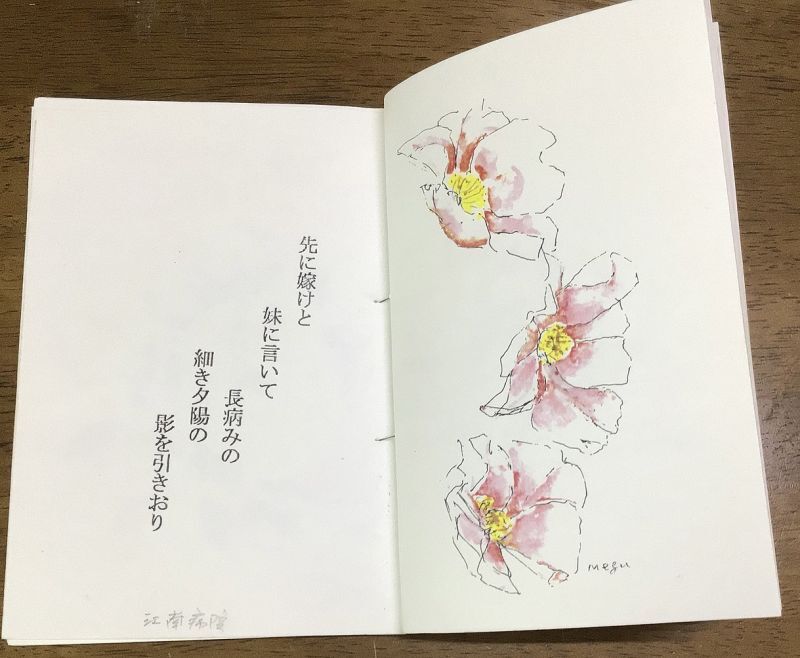 先に嫁けと
妹に言いて
長病みの
細き夕陽の
影を引きおり
江南病院
megu